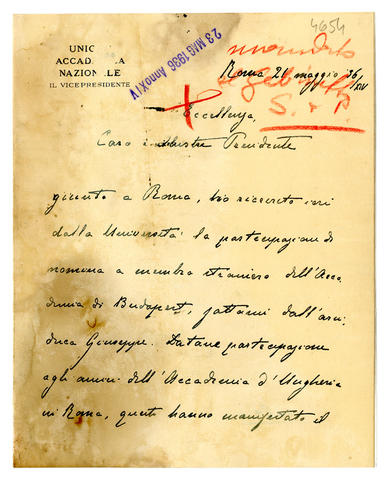 4654
23 MAG 1936 Anno XIV
UNIO
ACCADE A
NAZIONALE
IL VICEPRESIDENTE
Roma 21 maggio '36, XIV
Eccellenza,
Caro e illustre Presidente
giunto a Roma, ho ricevuto ieri
dalla Università la partecipazione di
nomina a membro straniero dell'Acca
demia di Budapest, fattami dall'arci
duca Giuseppe. Datane partecipazione
agli amici dell'Accademia d'Ungheria
in Roma, questi hanno manifestato il